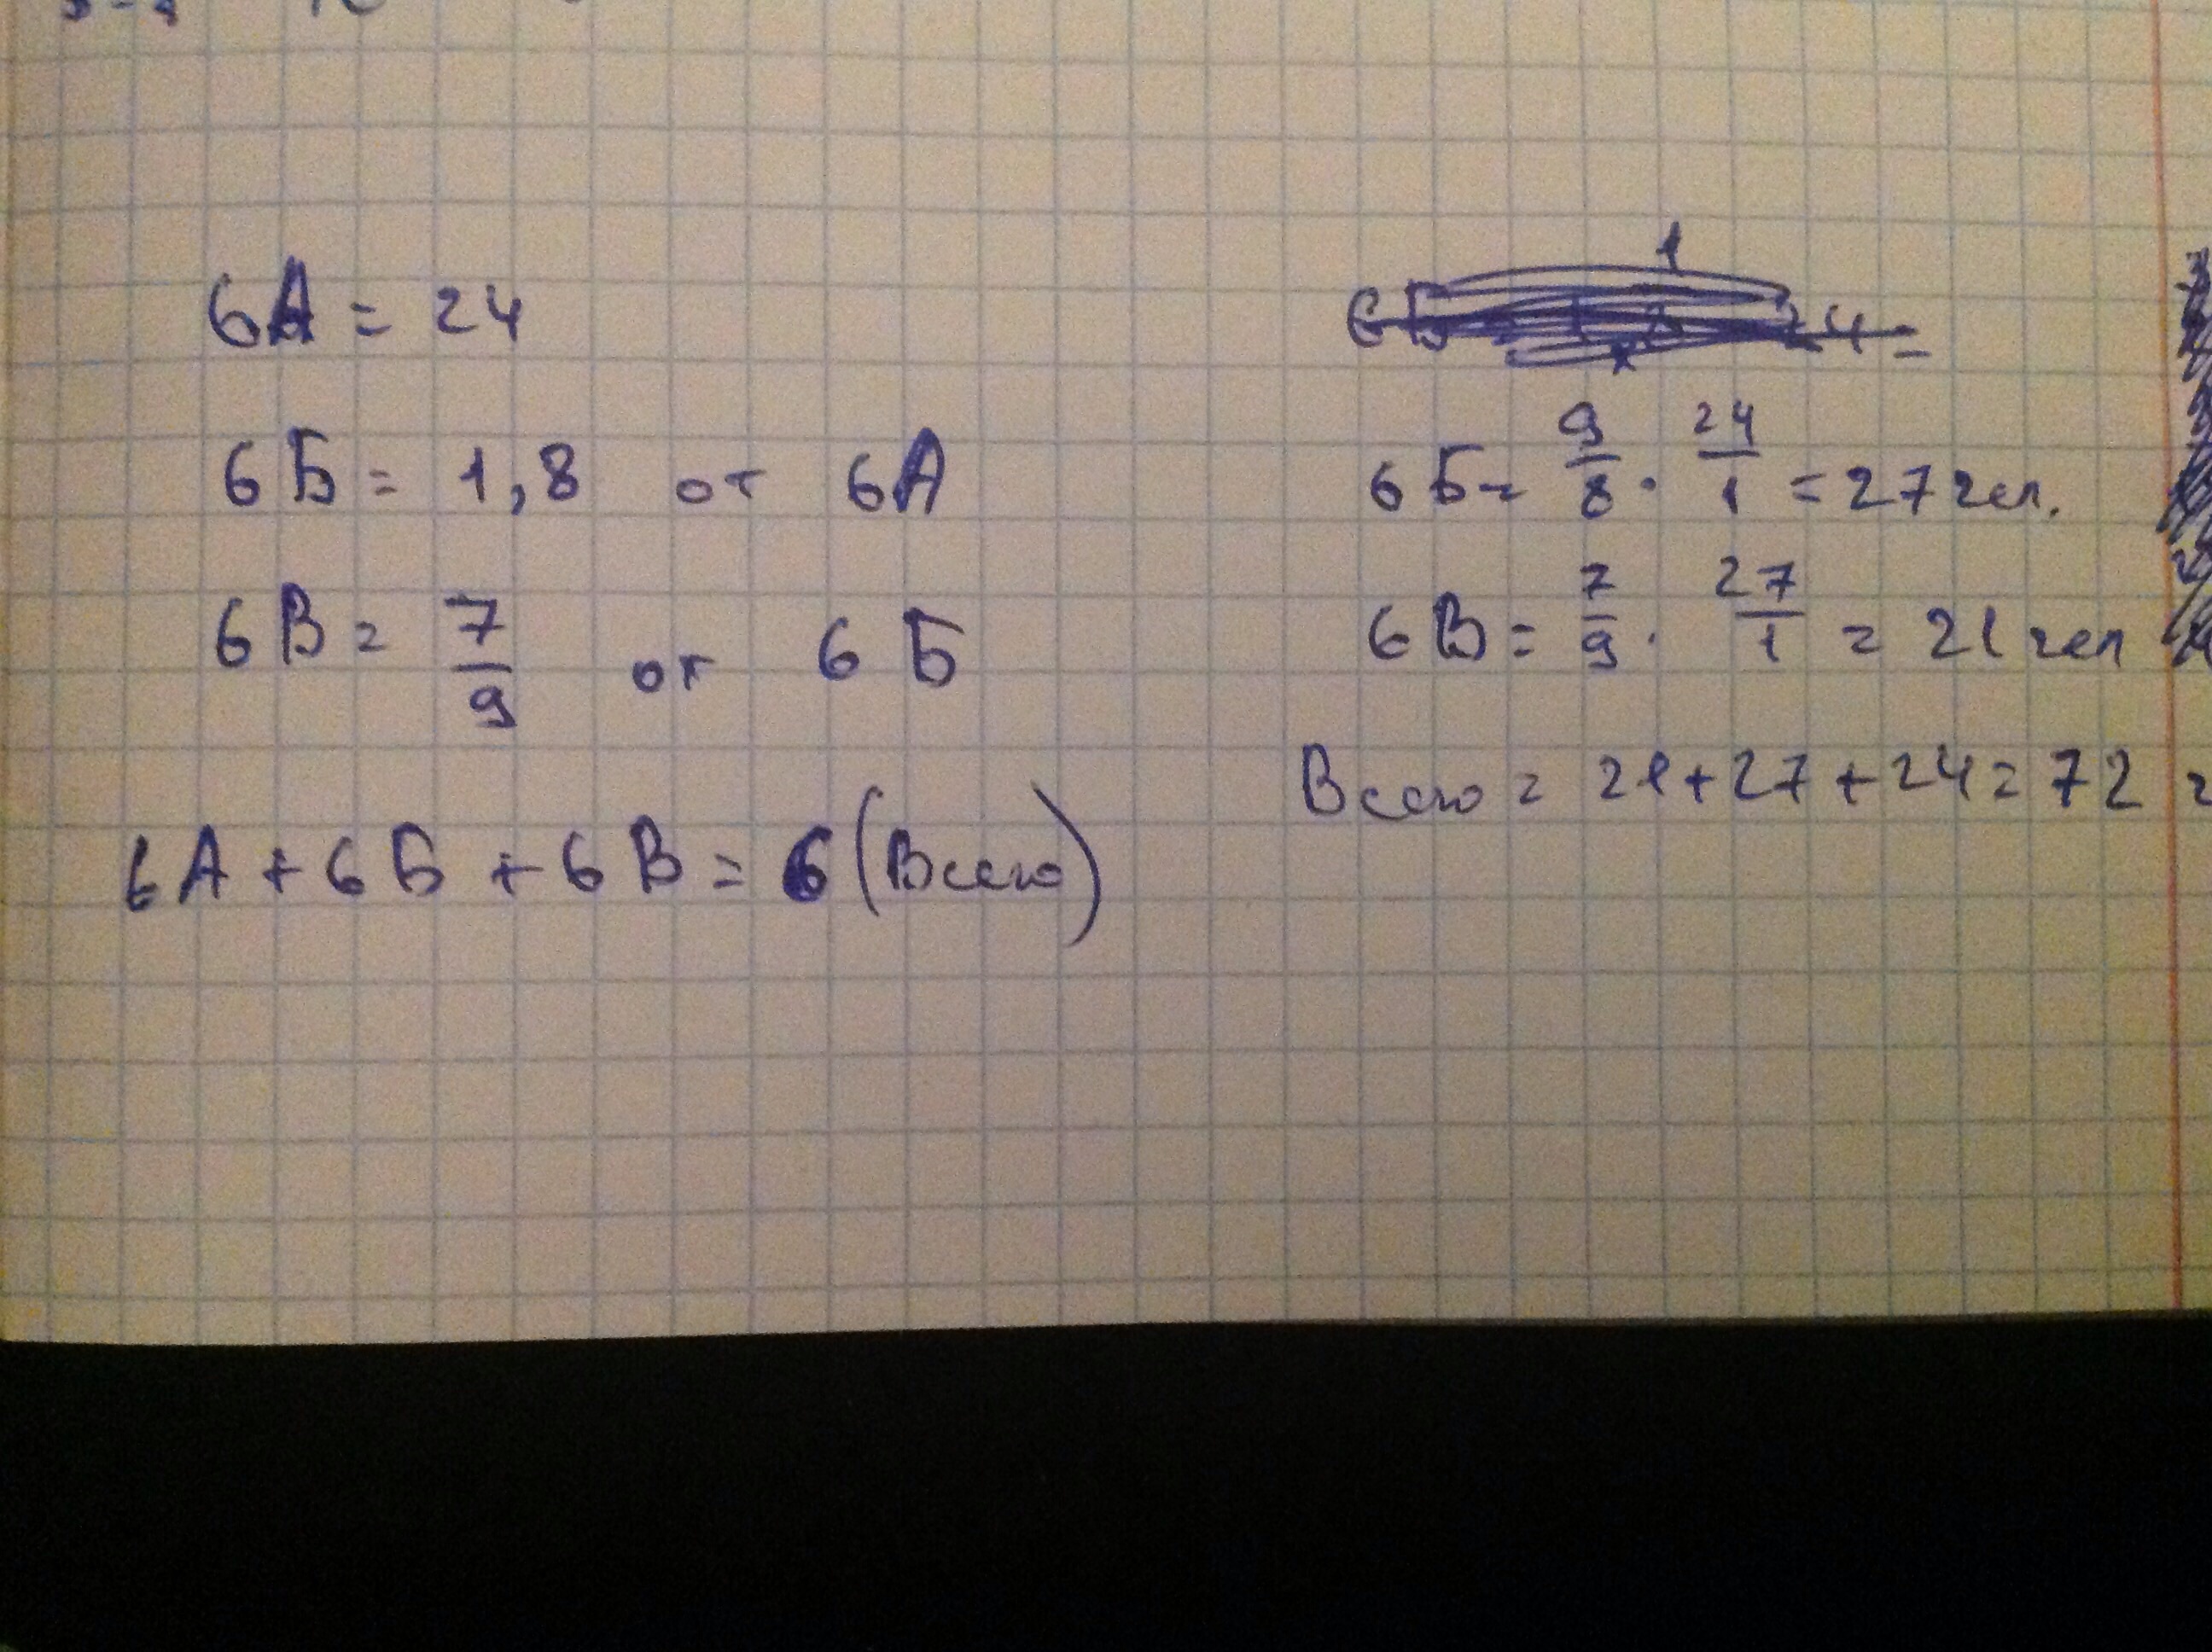 6А = 24
6Б = 1,8 от 6А
6В = 7/9 от 6Б
6А + 6Б + 6В = 6 (Всего)
6Б = 9/8 · 24/1 = 27 чел.
6В = 7/9 · 27/1 = 21 чел
Всего = 21 + 27 + 24 = 72